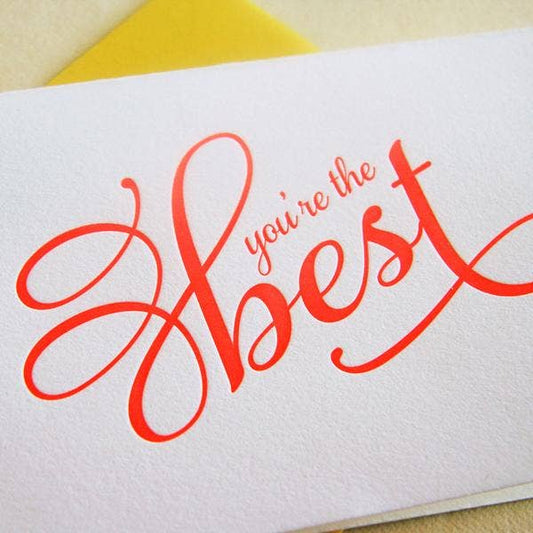 you're the
best